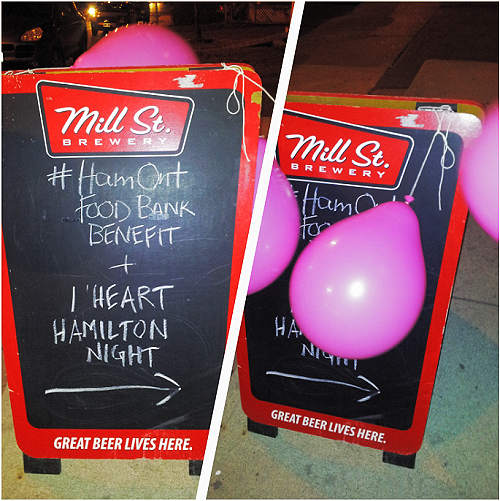 Mill St.
BREWERY
# HamOnt
FOOD BANK
BENEFIT
+
I 'HEART
HAMILTON
NIGHT
GREAT BEER LIVES HERE.
Mill St.
BREWERY
GREAT BEER LIVES HERE.